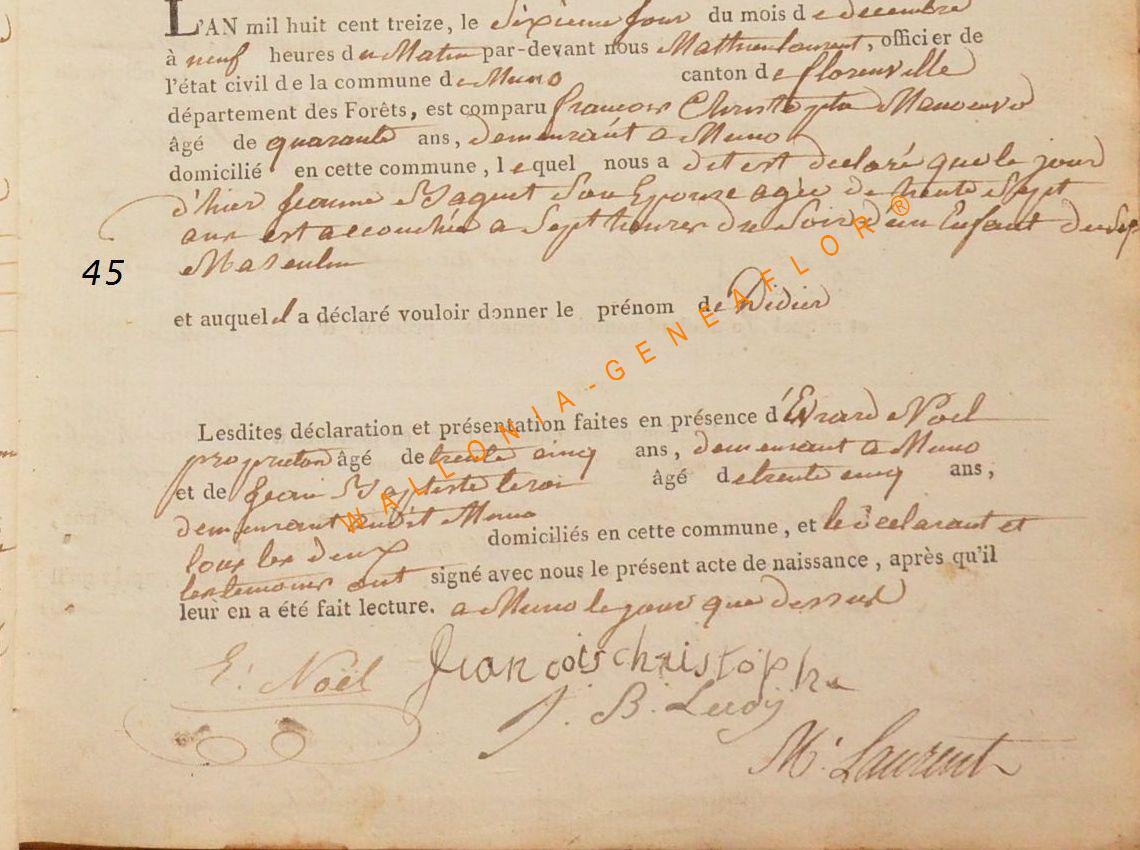 L'AN mil huit cent treize, le sixieme jour du mois de decembre
à neuf heures du Matin par-devant nous Mathieu Laurent, officier de
l'état civil de la commune de Muno canton de florenville
département des Forêts, est comparu francois Christophe Manoeuvr
âgé de quarante ans, demeurant a Muno
domicilié en cette commune, lequel nous a dit est declaré que le jour
d'hier Jeanne Baquet Son Epouze agée de trente Sept
ans est accouchée a Sept heures du Soir d'un Enfant du Sex
Masculin
45
et auquel il a déclaré vouloir donner le prénom de Didier
Lesdites déclaration et présentation faites en présence d'Evrard Noel
proprietair âgé de trente cinq ans, demeurant a Muno
et de Jean Baptiste leroi âgé de trente cinq ans,
demeurant audit Muno
domiciliés en cette commune, et le declarant et
tous les deux
les temoins ont signé avec nous le présent acte de naissance, après qu'il
leur en a été fait lecture. a Muno le jour que dessus
E. Noël francois christophe
J. B. Leroy
M. Laurent
WALLONIA-GENEAFLOR®